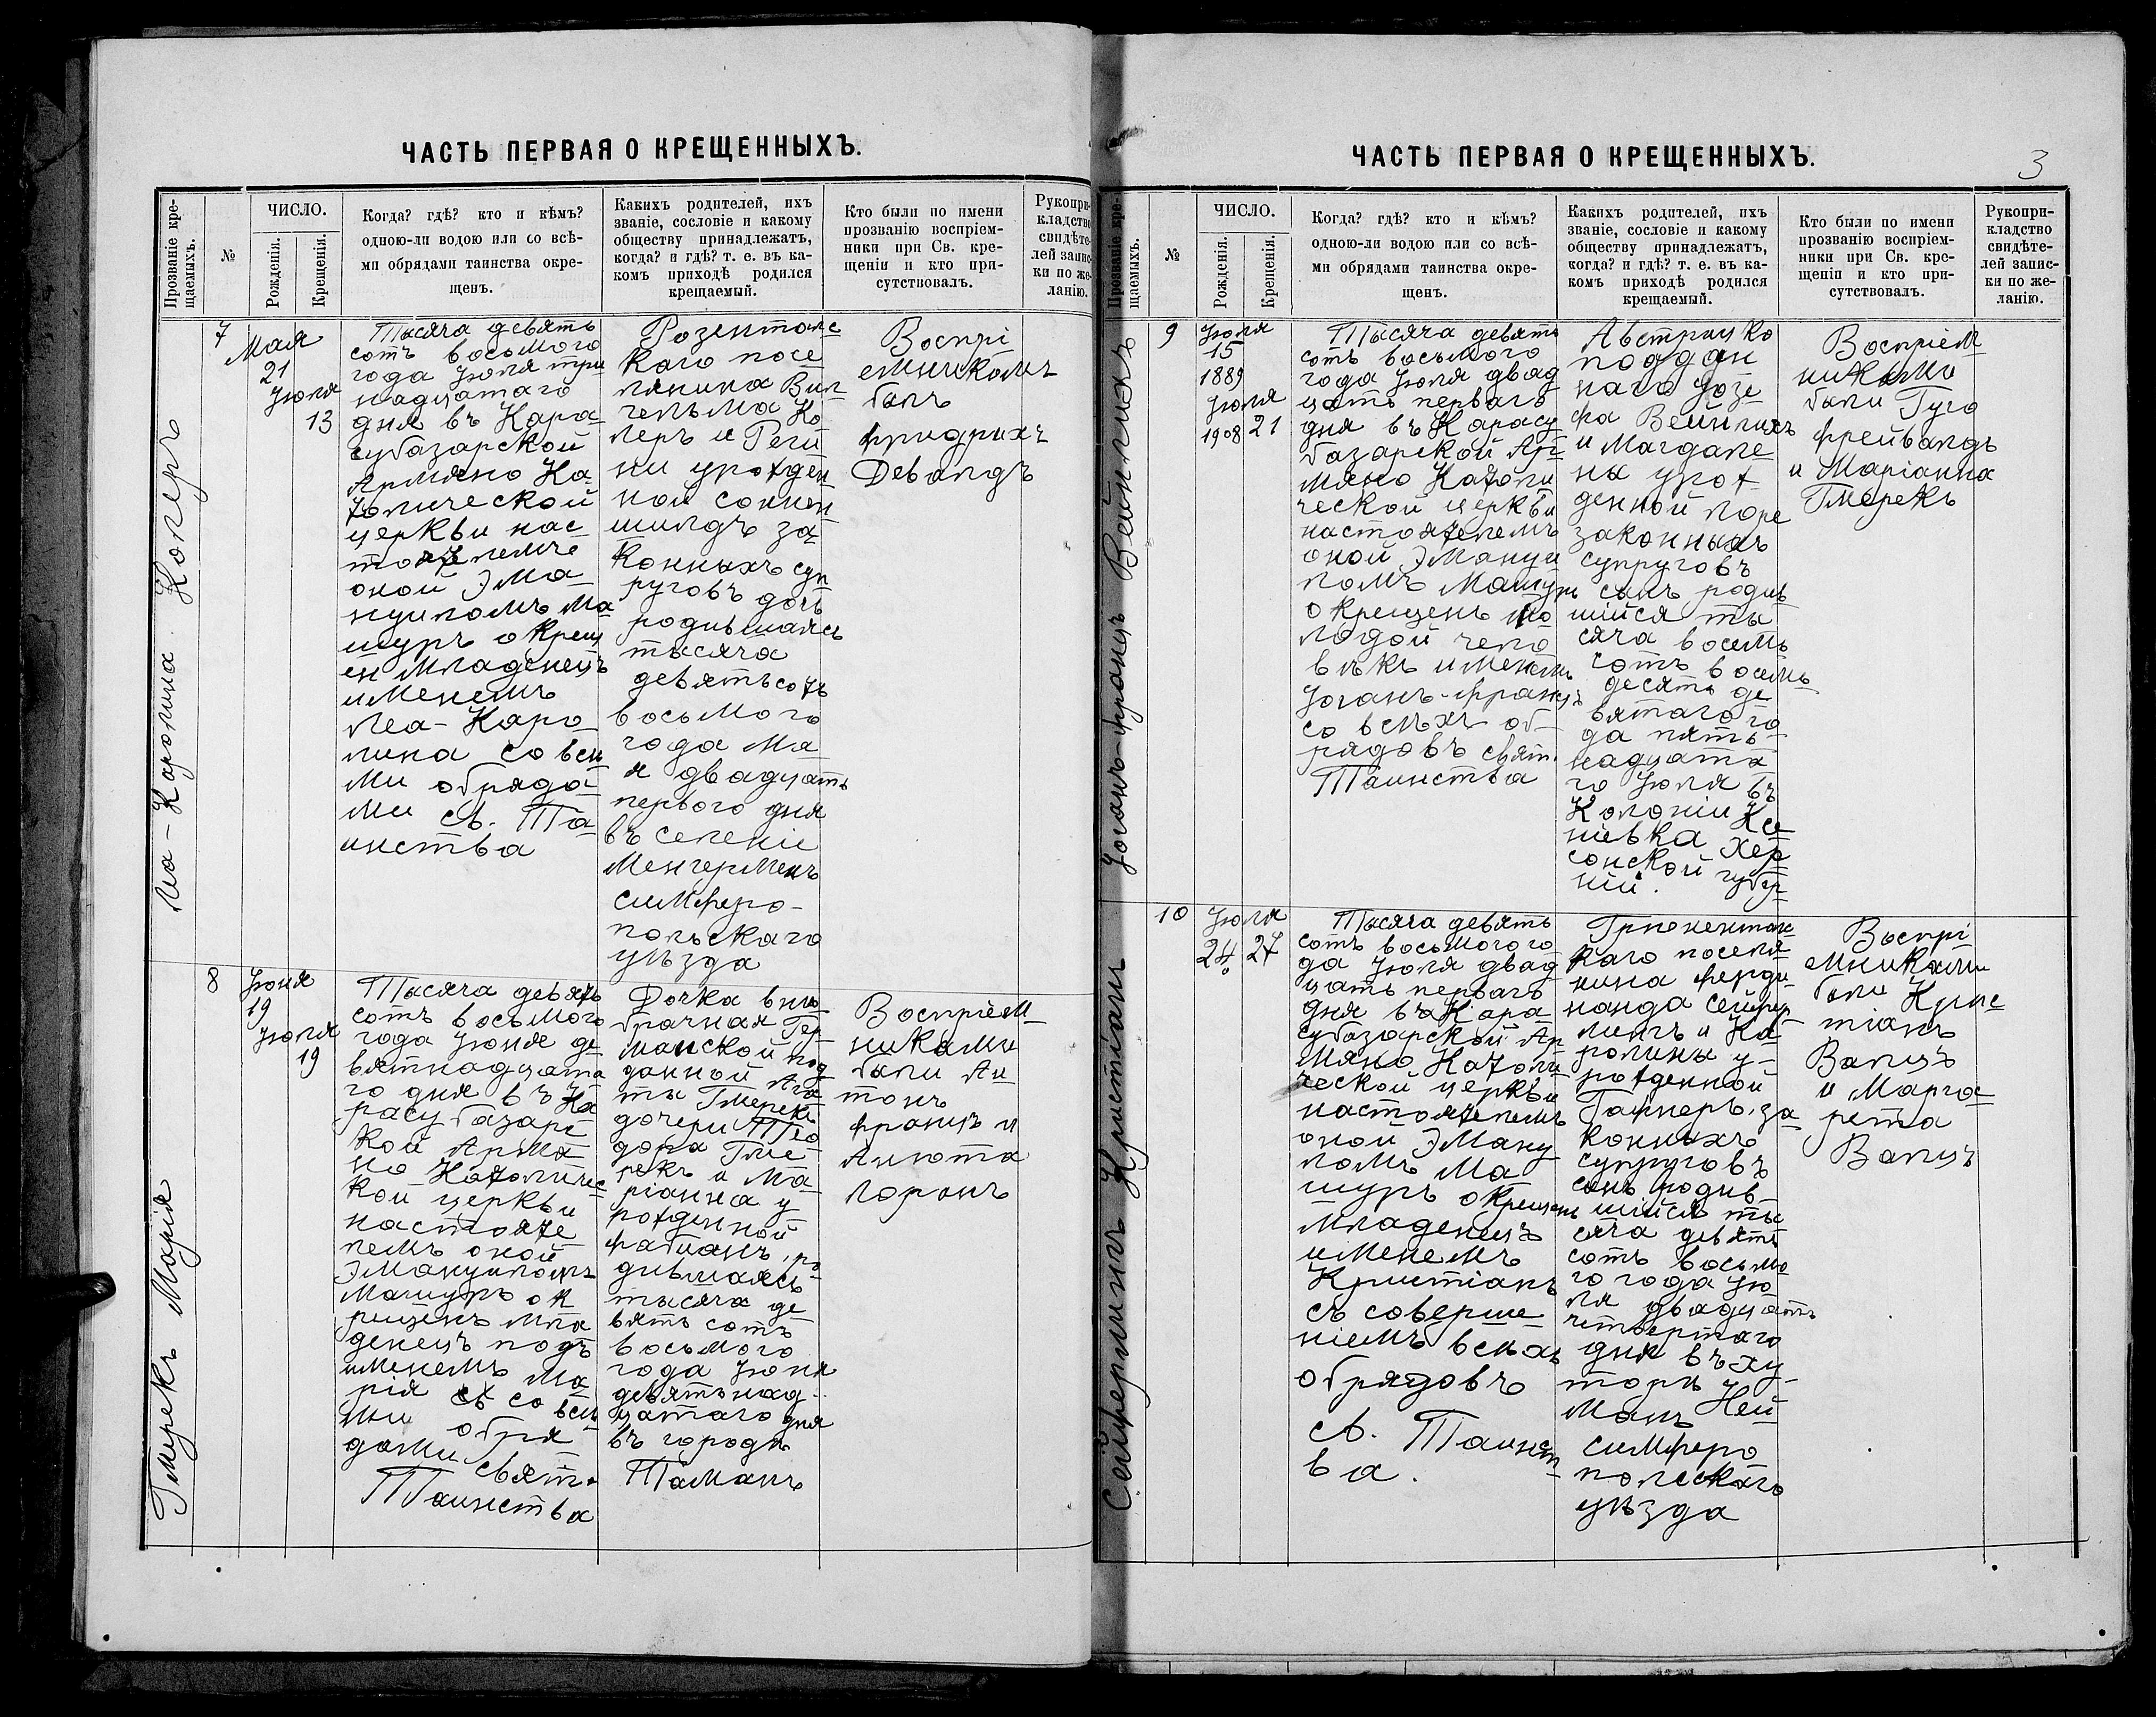 ЧАСТЬ ПЕРВАЯ О КРЕЩЕННЫХЪ.
Прозваніе кре-
щаемыхъ.
№
ЧИСЛО.
Рожденія.
Крещенія.
Когда? гдѣ? кто и кѣмъ?
одною-ли водою или со всѣ-
ми обрядами таинства окре-
щенъ.
Какихъ родителей, ихъ
званіе, сословіе и какому
обществу принадлежатъ,
когда? и гдѣ? т. е. въ ка-
комъ приходѣ родился
крещаемый.
Кто были по имени
прозванію воспріем-
ники при Св. кре-
щеніи и кто при-
сутствовалъ.
Рукопри-
кладство
свидѣте-
лей запис-
ки по же-
ланію.
Леа-Каролина Колеръ
7
Мая
21
Іюля
13
Тысяча девять
сотъ восьмого
года Іюля три
надцатаго
дня въ Кара
субазарской
Армяно Ка
толической
церкви нас
тоятелемъ
оной Эма
нуиломъ Ма
шуръ окрещ
ен младенецъ
именемъ
Леа-Каро
лина со всѣ
ми обряда
ми св. Та
инства
Розентальс
каго посе
лянина Виль
гельма Ко
леръ и Реги
ны урожден
ной Соннен
шильдъ за
конныхъ суп
руговъ дочь
родившаяся
тысяча
девятьсотъ
восьмого
года Ма
я двадцать
первого дня
въ селеніи
Менгермень
Симферо-
польскаго
уѣзда
Воспрі
емникомъ
былъ
Фридрихъ
Девальдъ
Гмерекъ Марія
8
Іюня
19
Іюля
19
Тысяча девять
сотъ восьмого
года Іюня де
вятнадцата
го дня въ Ка
расубазарс
кой Армя
но Католичес
кой церкви
настояте
лемъ оной
Эмануиломъ
Машуръ ок
рещенъ мла
денецъ подъ
именемъ Ма
рія съ со всѣ
ми обря
дами свят.
Таинства
Дочка внѣ
брачная Гер
манской под
данной Ага
ты Гмерекъ
дочери Тео
дора Гме
рекъ и Ма
ріанна у
рожденной
Фабианъ, ро
дившаяся
тысяча де
вять сотъ
восьмого
года Іюня
девятьнад
цатаго дня
въ городѣ
Таманъ
Воспріем
никами
были Ан
тонъ
Францъ и
Анюта
Лоранъ
ЧАСТЬ ПЕРВАЯ О КРЕЩЕННЫХЪ.
3
Прозваніе кре-
щаемыхъ.
№
ЧИСЛО.
Рожденія.
Крещенія.
Когда? гдѣ? кто и кѣмъ?
одною-ли водою или со всѣ-
ми обрядами таинства окре-
щенъ.
Какихъ родителей, ихъ
званіе, сословіе и какому
обществу принадлежатъ,
когда? и гдѣ? т. е. въ ка-
комъ приходѣ родился
крещаемый.
Кто были по имени
прозванію воспріем-
ники при Св. кре-
щеніи и кто при-
сутствовалъ.
Рукопри-
кладство
свидѣте-
лей запис-
ки по же-
ланію.
Іоганъ-Францъ Вейнлихъ
9
Іюля
15
1889
Іюля
1908
21
Тысяча девять
сотъ восьмого
года Іюля двад
цать перваго
дня въ Карасу
базарской Ар
мяно Католи
ческой церкви
настоятелемъ
оной Эмануи
ломъ Машуръ
окрещенъ мо
лодой чело
вѣкъ именемъ
Іоганъ-Францъ
со всѣхъ об-
рядовъ свят.
Таинства
Австрийско
поддан
наго Іозе
фа Вейнлихъ
и Магдале
ны урож
денной Лоре
законныхъ
супруговъ
сынъ родив
шійся ты
сяча восемь
сотъ восемь
десять де
вятаго го
да пять
надцата
го Іюля въ
Колоніи Ксе
ніевка Хер
сонской губер
ніи.
Воспріем
никами
были Гуго
Фрейвальдъ
и Маріанна
Гмерекъ
Сейферлингъ Христіанъ
10
Іюля
24
27
Тысяча девять
сотъ восьмого го
да Іюля двад
цать перваго
дня въ Кара
субазарской Ар
мяно Католи
ческой церкви
настоятелемъ
оной Эману
ломъ Ма
шуръ окрещенъ
младенецъ
именемъ
Кристіанъ
съ соверше
ніемъ всѣхъ
обрядовъ
св. Таинст
ва.
Грюненталь
каго поселя
нина Ферди
нанда Сейфер
лингъ и Ка
ролины у-
рожденной
Гафнеръ, за
конныхъ
супруговъ
сынъ родив
шійся ты
сяча девять
сотъ восьмо
го года Ію
ля двадцать
четвертаго
дня въ ху-
торѣ Ней
манъ
Симферо
польскаго
уѣзда
Воспрі
емниками
были Крис
тіанъ
Вальцъ
и Марга
рета
Вальцъ